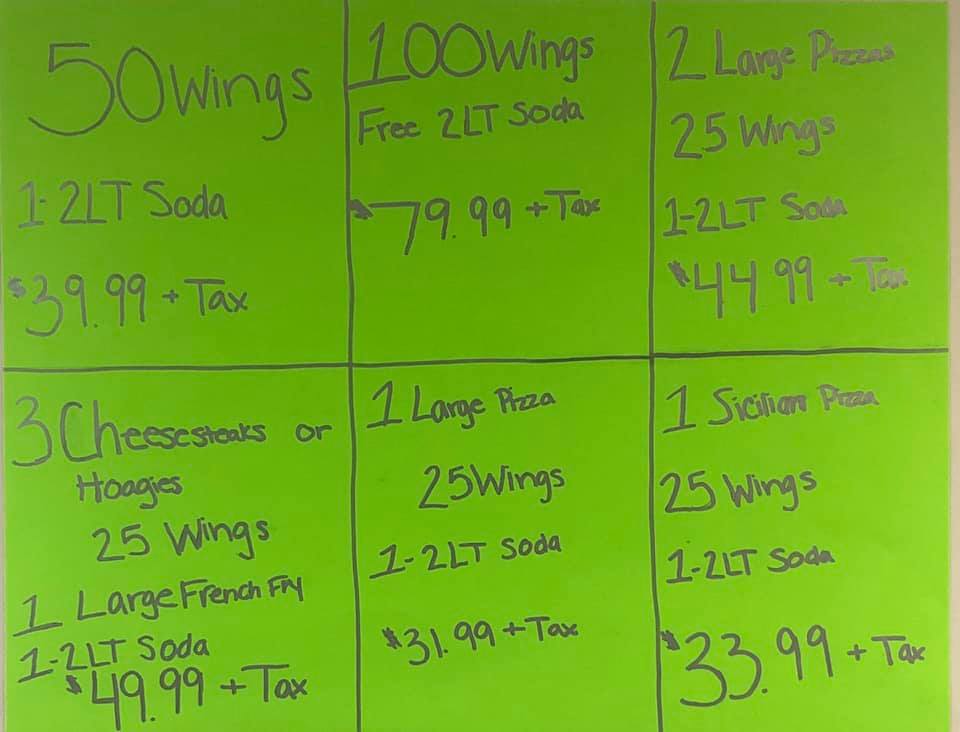 50 Wings
1-2LT Soda
$39.99 + Tax
100 Wings
Free 2LT Soda
$79.99 + Tax
2 Large Pizzas
25 Wings
1-2LT Soda
$44.99 + Tax
3 Cheesesteaks or
Hoagies
25 Wings
1 Large French Fry
1-2LT Soda
$49.99 + Tax
1 Large Pizza
25 Wings
1-2LT Soda
$31.99 + Tax
1 Sicilian Pizza
25 Wings
1-2LT Soda
$33.99 + Tax